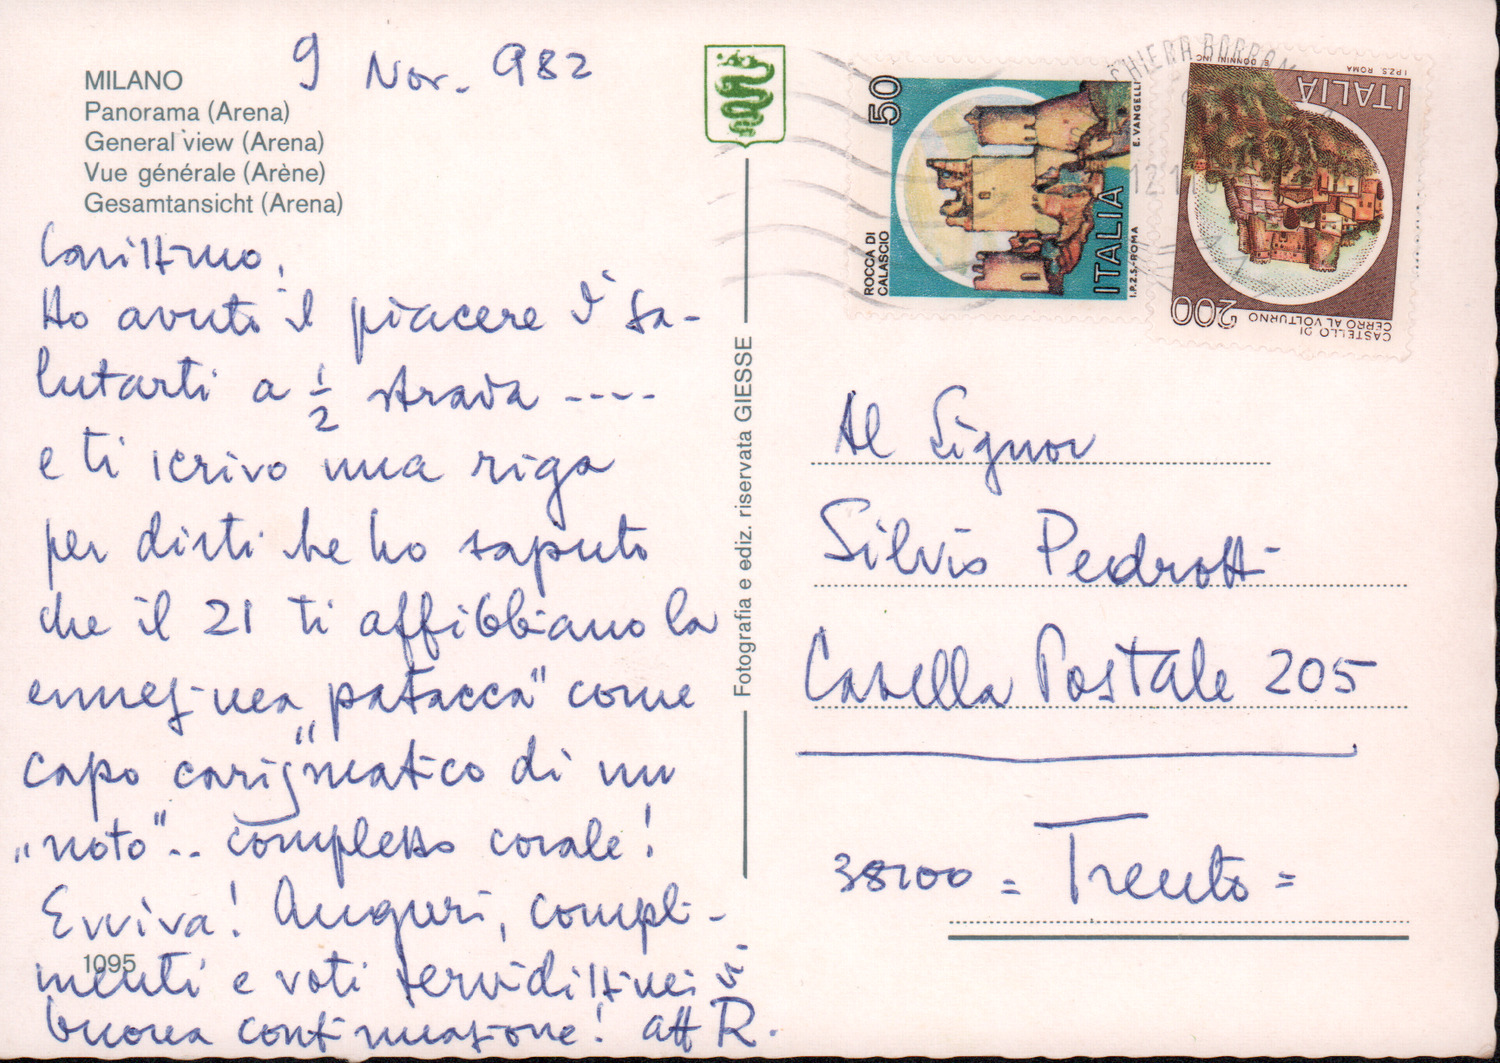 9 Nov. 982
MILANO
Panorama (Arena)
General view (Arena)
Vue générale (Arène)
Gesamtansicht (Arena)
Carissimo,
Ho avuto il piacere d' sa-
lutarti a 1/2 strada ----
e ti scrivo una riga
per dirti che ho saputo
che il 21 ti affibbiano la
ennesima „patacca" come
capo carismatico di un
„noto".. complesso corale!
Evviva! Auguri, compli-
menti e voti fervidissimi di
buona continuazione! aff R.
1095
Fotografia e ediz. riservata GIESSE
50
ROCCA DI
CALASCIO
ITALIA
I.P.Z.S.-ROMA
E. VANGELLI
CHIERA BORROM
12.1
I.P.Z.S. ROMA
E. DONNINI INC.
ITALIA
200
CASTELLO DI
CERRO AL VOLTURNO
Al Signor
Silvio Pedrotti
Casella Postale 205
38100 = Trento =